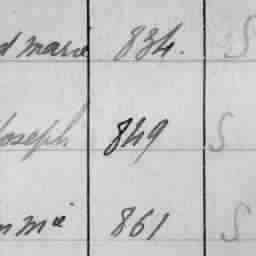 d marie 834. S
Joseph 849 S
mmie 861 S